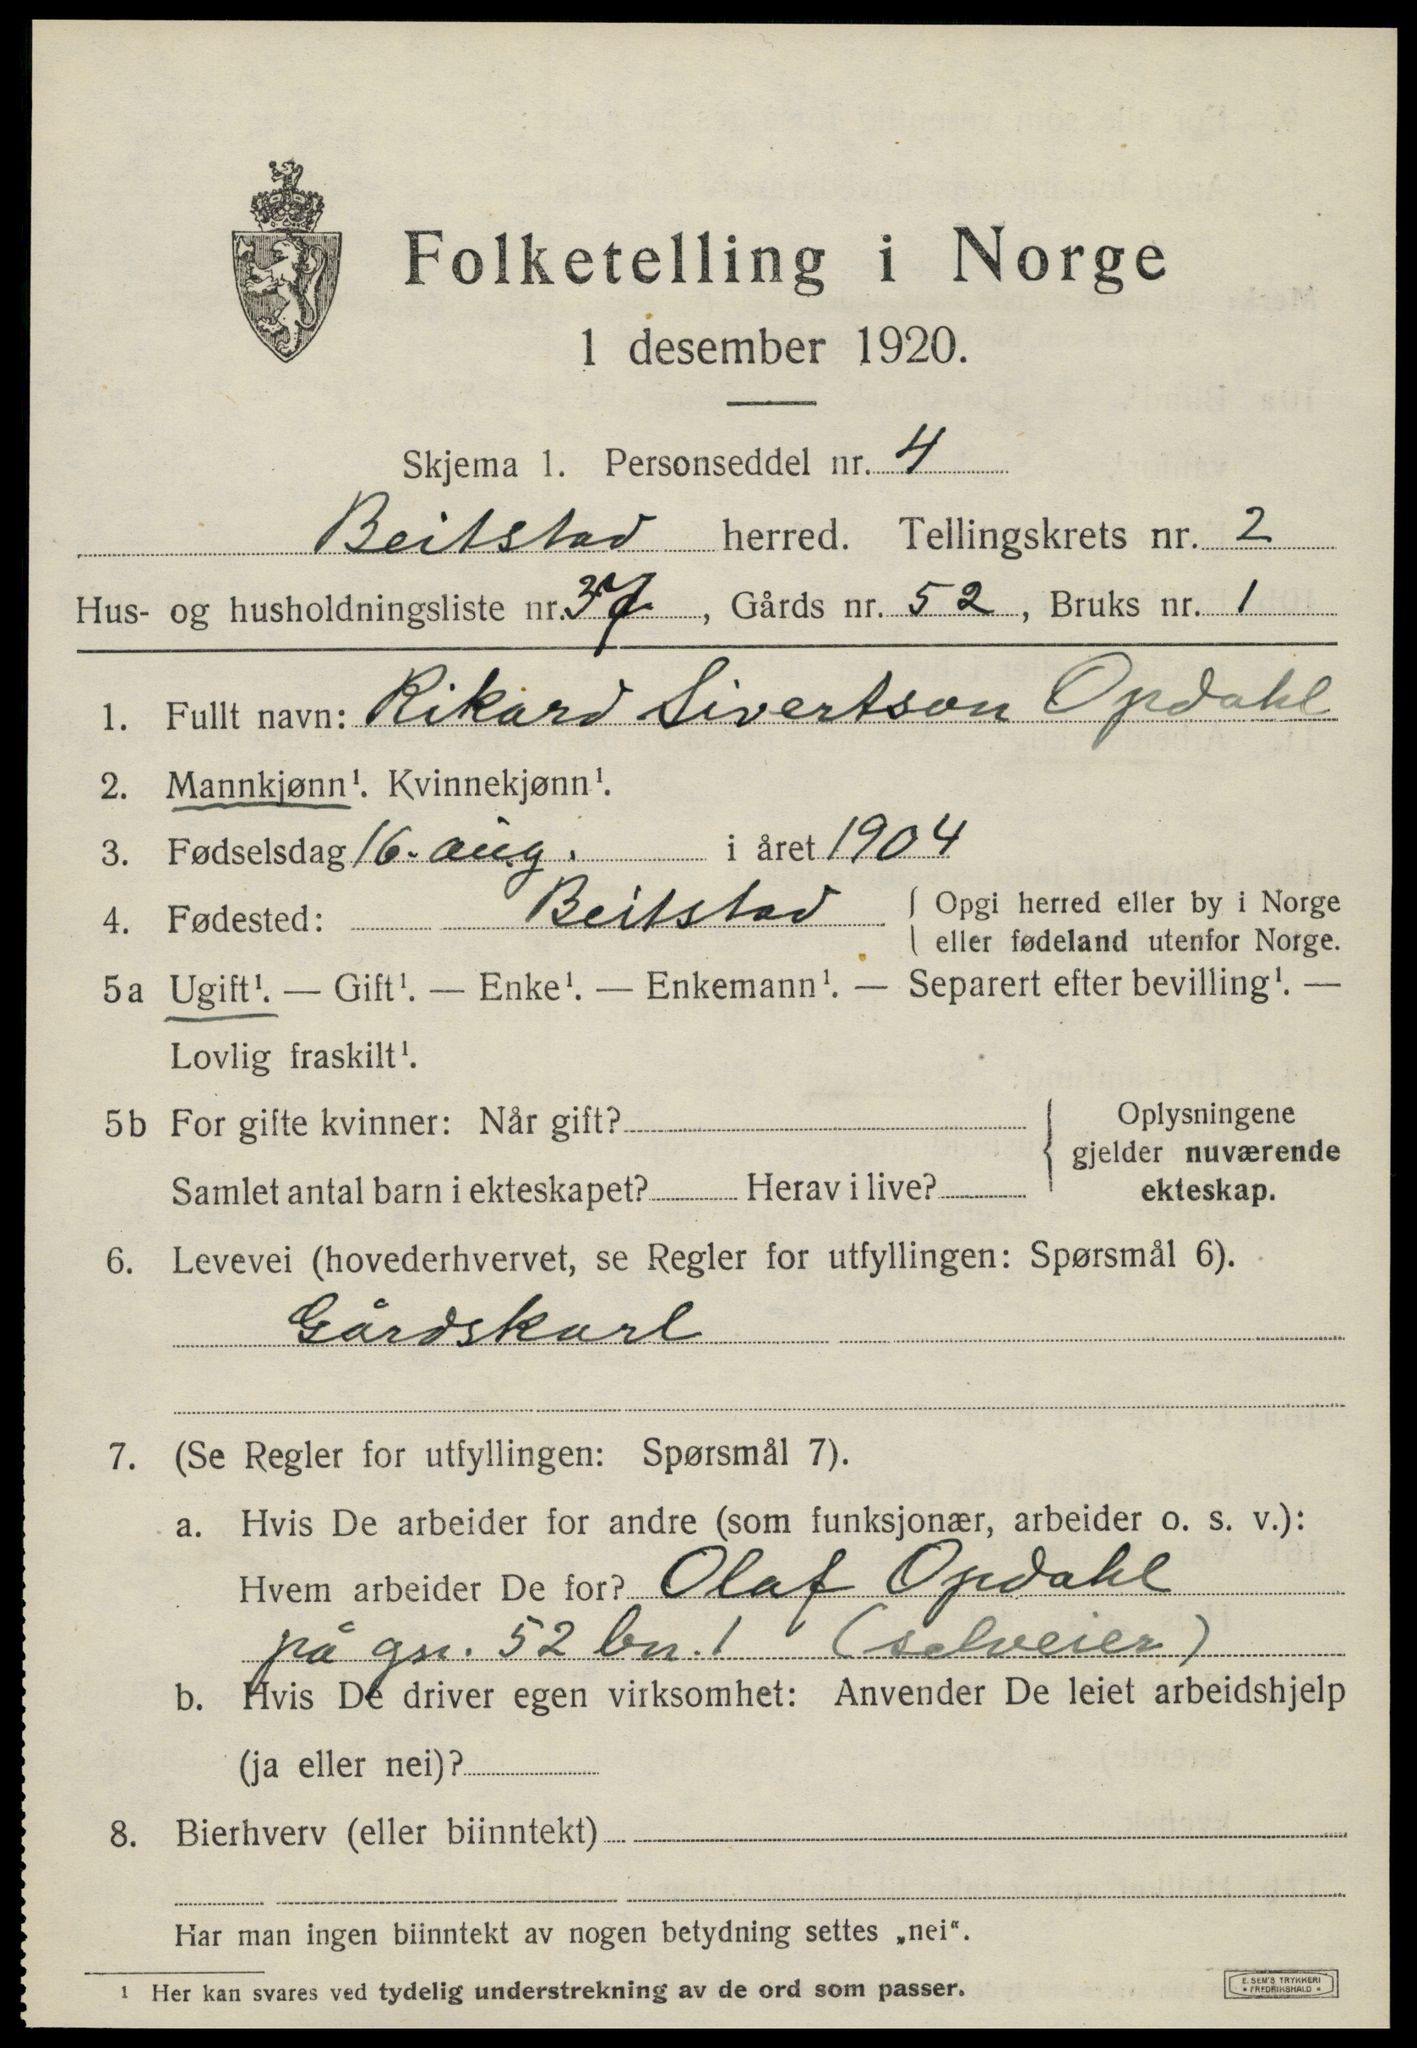 Folketelling i Norge
1 desember 1920.
Skjema 1. Personseddel nr. 4
Beitstad herred. Tellingskrets nr. 2
Hus- og husholdningsliste nr. 37, Gårds nr. 52, Bruks nr. 1
1. Fullt navn: Rikard Sivertson Opdahl
2. Mannkjønn¹. Kvinnekjønn¹.
3. Fødselsdag 16. aug. i året 1904
4. Fødested: Beitstad { Opgi herred eller by i Norge
eller fødeland utenfor Norge.
5a Ugift¹. — Gift¹. — Enke¹. — Enkemann¹. — Separert efter bevilling¹. —
Lovlig fraskilt¹.
5b For gifte kvinner: Når gift? { Oplysningene
gjelder nuværende
Samlet antal barn i ekteskapet? Herav i live? ekteskap.
6. Levevei (hovederhvervet, se Regler for utfyllingen: Spørsmål 6).
Gårdskarl
7. (Se Regler for utfyllingen: Spørsmål 7).
a. Hvis De arbeider for andre (som funksjonær, arbeider o. s. v.):
Hvem arbeider De for? Olaf Opdahl
på gn. 52 bn. 1 (selveier)
b. Hvis De driver egen virksomhet: Anvender De leiet arbeidshjelp
(ja eller nei)?
8. Bierhverv (eller biinntekt)
Har man ingen biinntekt av nogen betydning settes „nei“.
¹ Her kan svares ved tydelig understrekning av de ord som passer.
E. SEM'S TRYKKERI
* FREDRIKSHALD *